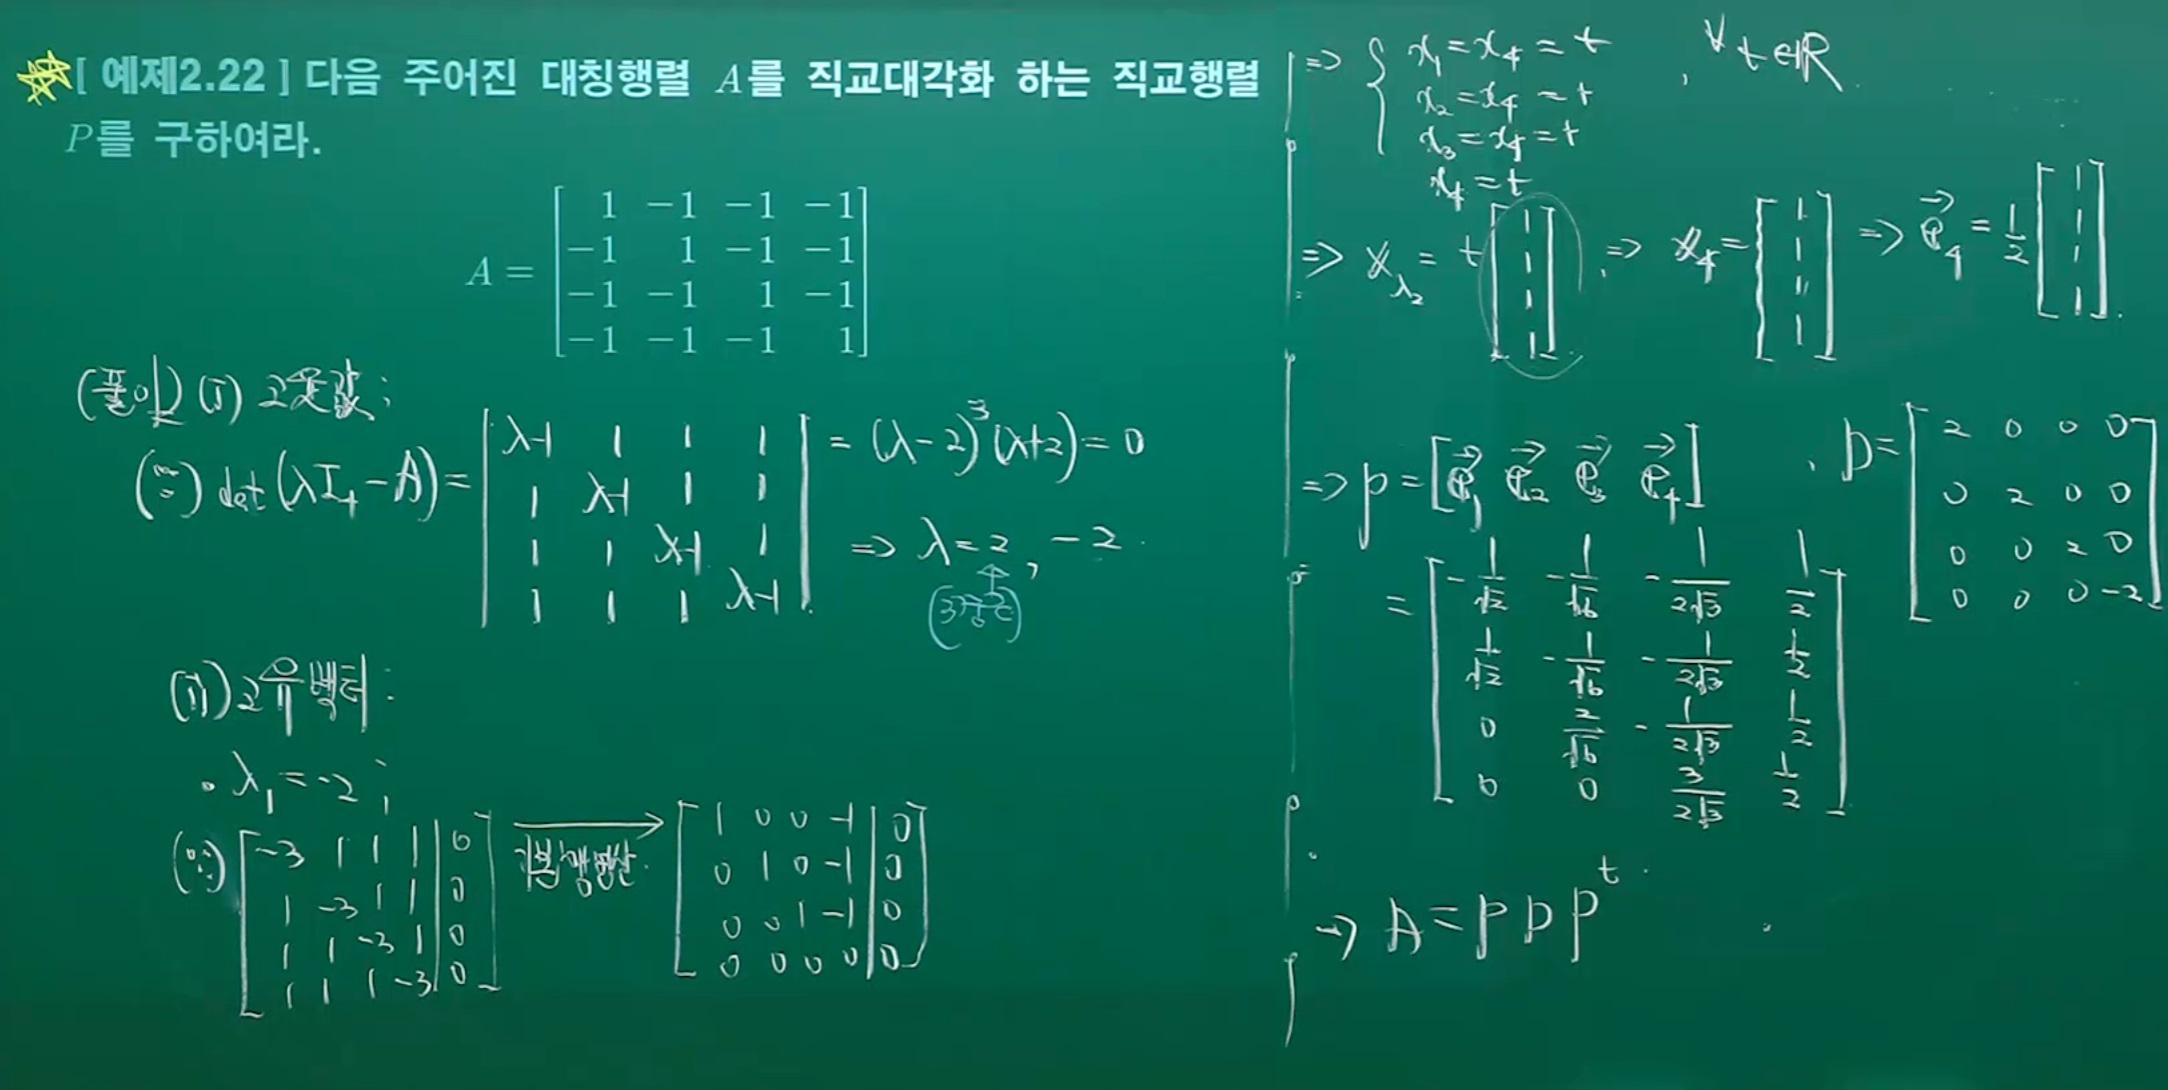 [ 예제2.22 ] 다음 주어진 대칭행렬 A를 직교대각화 하는 직교행렬
P를 구하여라.
A = [ 1 −1 −1 −1
−1 1 −1 −1
−1 −1 1 −1
−1 −1 −1 1 ]
(풀이) (i) 고윳값 ;
(∵) det(λI₄ − A) = | λ-1 1 1 1 | = (λ−2)³(λ+2) = 0
| 1 λ-1 1 1 |
| 1 1 λ-1 1 | ⇒ λ = 2, −2.
| 1 1 1 λ-1 |
(3중근)
(ii) 고유벡터 :
• λ₁ = −2 ;
(∵) [ −3 1 1 1 | 0 ] → [ 1 0 0 −1 | 0 ]
[ 1 −3 1 1 | 0 ] 기본행연산. [ 0 1 0 −1 | 0 ]
[ 1 1 −3 1 | 0 ] [ 0 0 1 −1 | 0 ]
[ 1 1 1 −3 | 0 ] [ 0 0 0 0 | 0 ]
⇒ { x₁ = x₄ = t , ∀t∈ℝ.
x₂ = x₄ = t
x₃ = x₄ = t
x₄ = t
⇒ x_λ₂ = t [ 1 1 1 1 ] , ⇒ x₄ = [ 1 1 1 1 ] ⇒ e⃗₄ = 1/2 [ 1 1 1 1 ].
⇒ P = [ e⃗₁ e⃗₂ e⃗₃ e⃗₄ ] , D = [ 2 0 0 0
0 2 0 0
0 0 2 0
0 0 0 −2 ]
= [ −1/√2 −1/√6 −1/2√3 1/2
1/√2 −1/√6 −1/2√3 1/2
0 2/√6 −1/2√3 1/2
0 0 3/2√3 1/2 ]
⇒ A = P D Pᵗ.